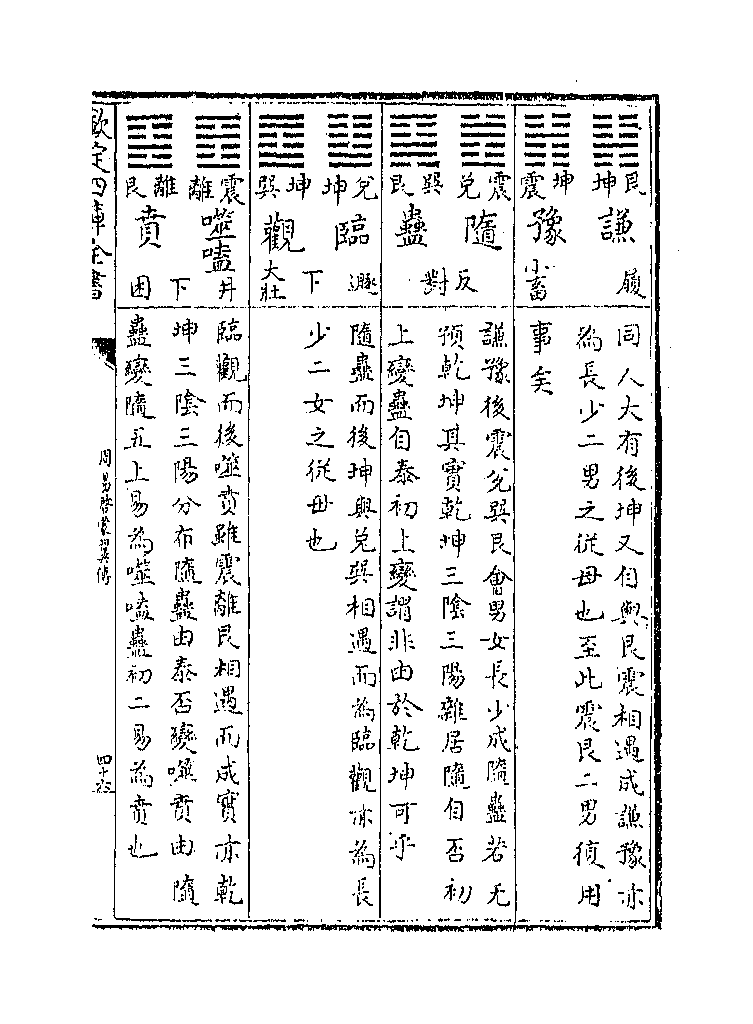 艮坤謙履
坤震豫小畜
同人大有後坤又自與艮震相遇成謙豫亦
為長少二男之從母也至此震艮二男復用
事矣
震兌隨
巽艮蠱
反對
謙豫後震兌巽艮會男女長少成隨蠱若无
預乾坤其實乾坤三陰三陽雜居隨自否初
上變蠱自泰初上變謂非由於乾坤可乎
兌坤臨遯
下
坤巽觀大壯
隨蠱而後坤與兌巽相遇而為臨觀亦為長
少二女之從母也
震離噬嗑井
下
離艮賁困
臨觀而後噬賁雖震離艮相遇而成實亦乾
坤三陰三陽分布隨蠱由泰否變噬賁由隨
蠱變隨五上易為噬嗑蠱初二易為賁也
欽定四庫全書
周易啓蒙翼傳
四十